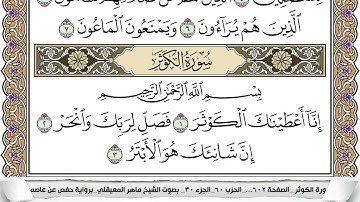 ٱلَّذِينَ هُمْ يُرَآءُونَ ٦ وَيَمْنَعُونَ ٱلْمَاعُونَ ٧
سُورَةُ الكَوْثَرِ
بِسْمِ ٱللَّهِ ٱلرَّحْمَٰنِ ٱلرَّحِيمِ
إِنَّآ أَعْطَيْنَٰكَ ٱلْكَوْثَرَ ١ فَصَلِّ لِرَبِّكَ وَٱنْحَرْ ٢
إِنَّ شَانِئَكَ هُوَ ٱلْأَبْتَرُ ٣
الكوثر _الصفحة ٦٠٢ ... الحزب ٦٠_ الجزء ٣٠_ بصوت الشيخ ماهر المعيقلي_ برواية حفص عن عاصم